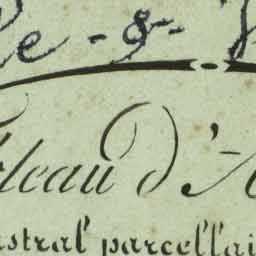 e - 8 -
leau d'A
stral parcellai